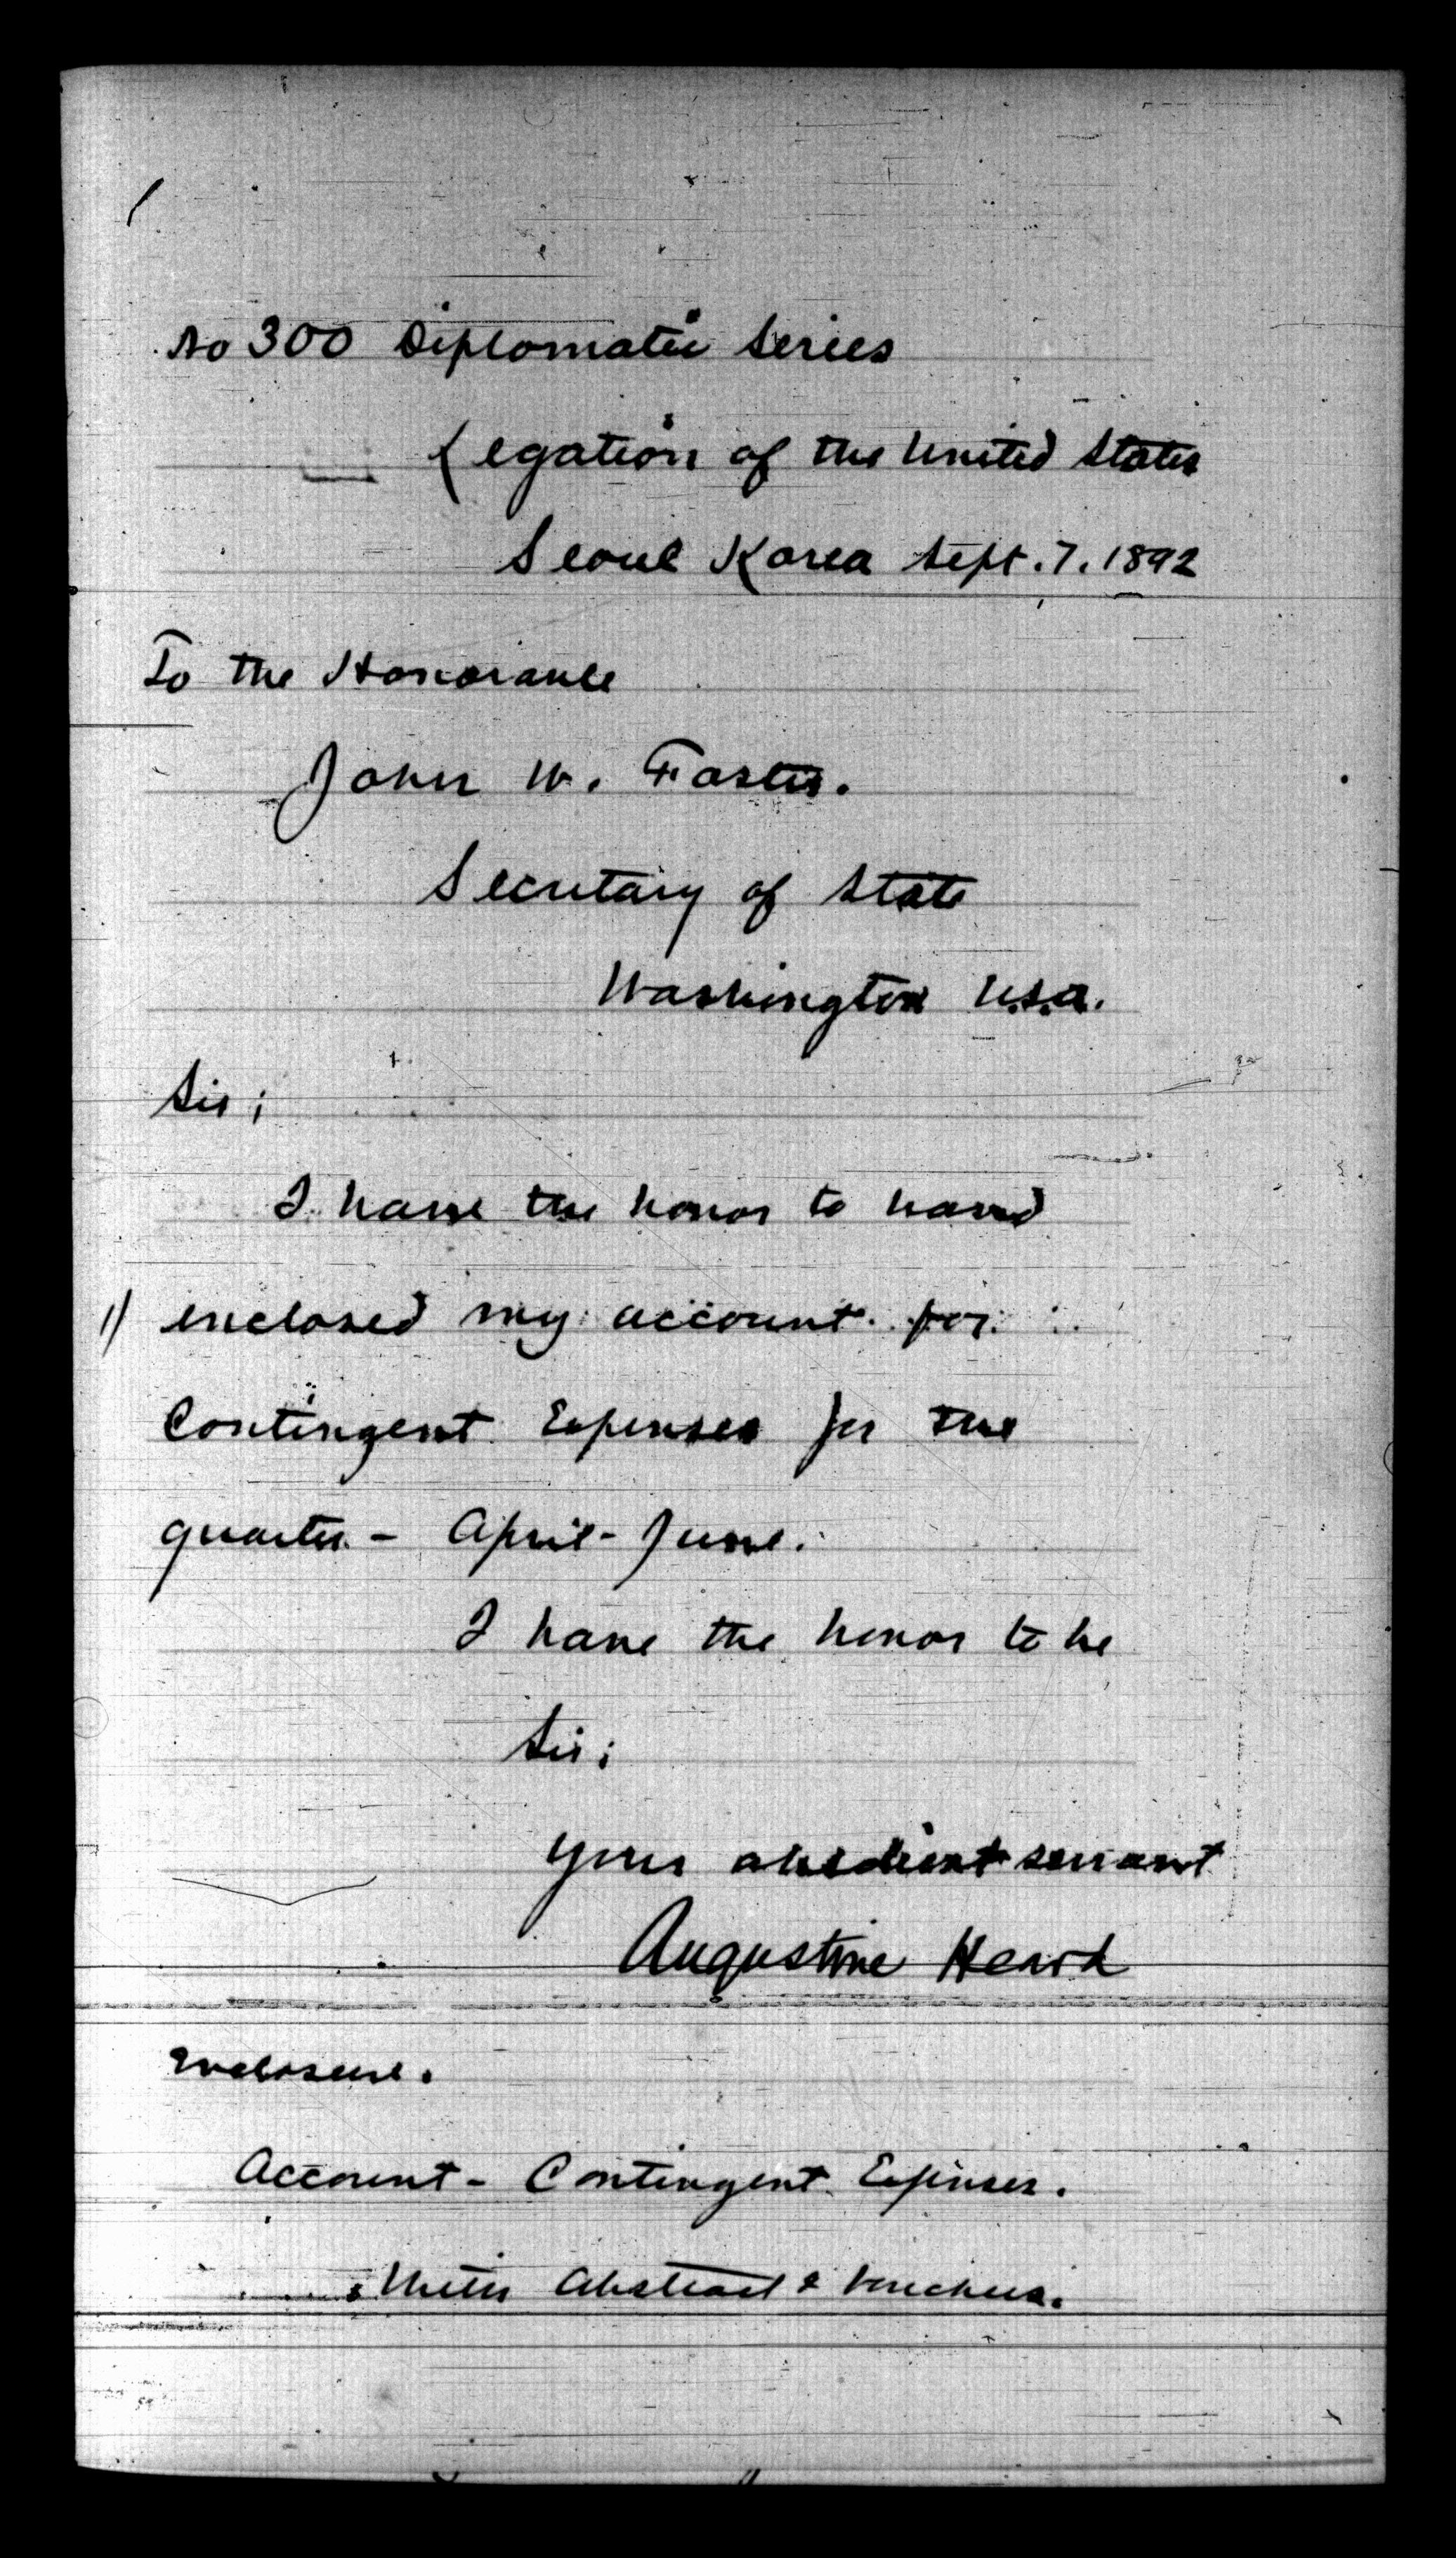 No 300 Diplomatic Series
Legation of the United States
Seoul Korea Sept. 7. 1892
To the Honorable
John W. Foster.
Secretary of State
Washington U.S.A.
Sir;
I have the honor to hand
1/ enclosed my account for
Contingent Expenses for the
quarter - April - June.
I have the honor to be
Sir;
Your obedient servant
Augustine Heard
Enclosure.
Account - Contingent Expenses.
With Abstract & Vouchers.